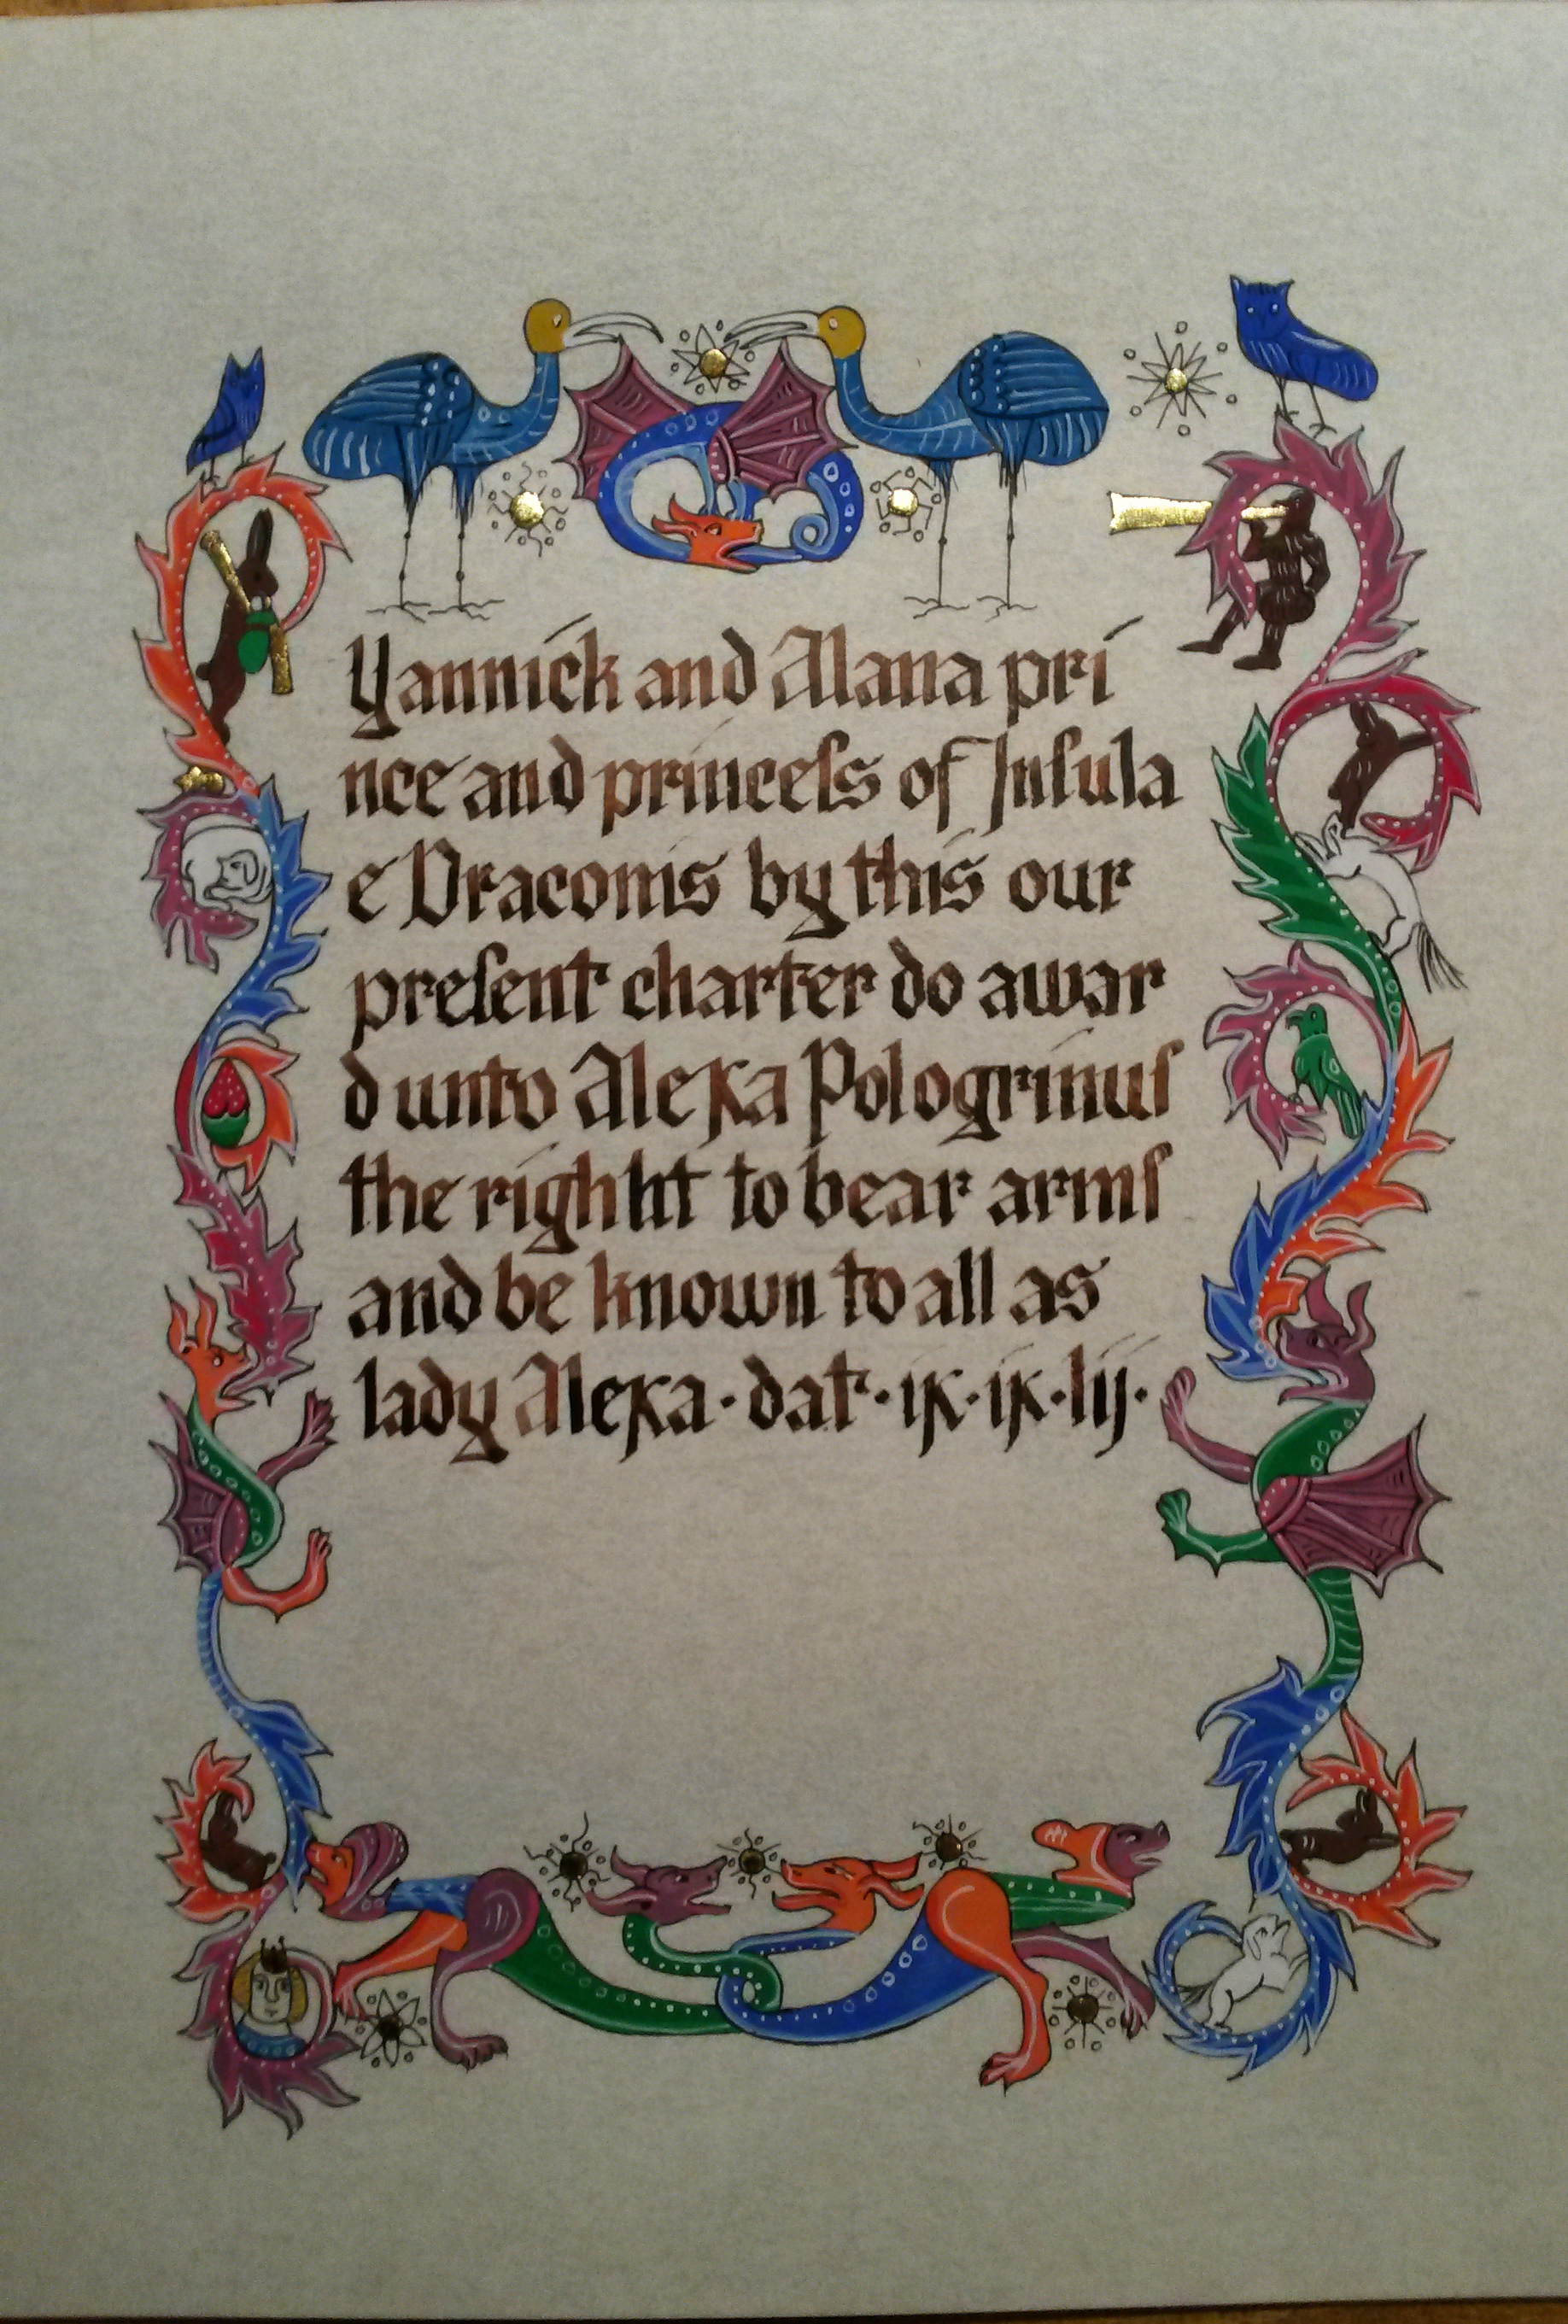 Yannick and Alana pri
nce and princeſs of Inſula
e Draconis by this our
preſent charter do awar
d unto Alexa Pologrinuſ
the righht to bear armſ
and be known to all as
lady Alexa · dat · ix · ix · lij ·